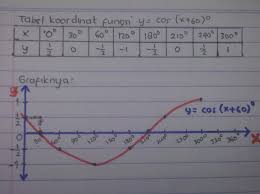 Tabel koordinat fungsi y = cos (x+60)°
x 0° 30° 60° 120° 180° 210° 240° 300°
y 1/2 0 -1/2 -1 -1/2 0 1/2 1
Grafiknya:
y = cos (x+60)°